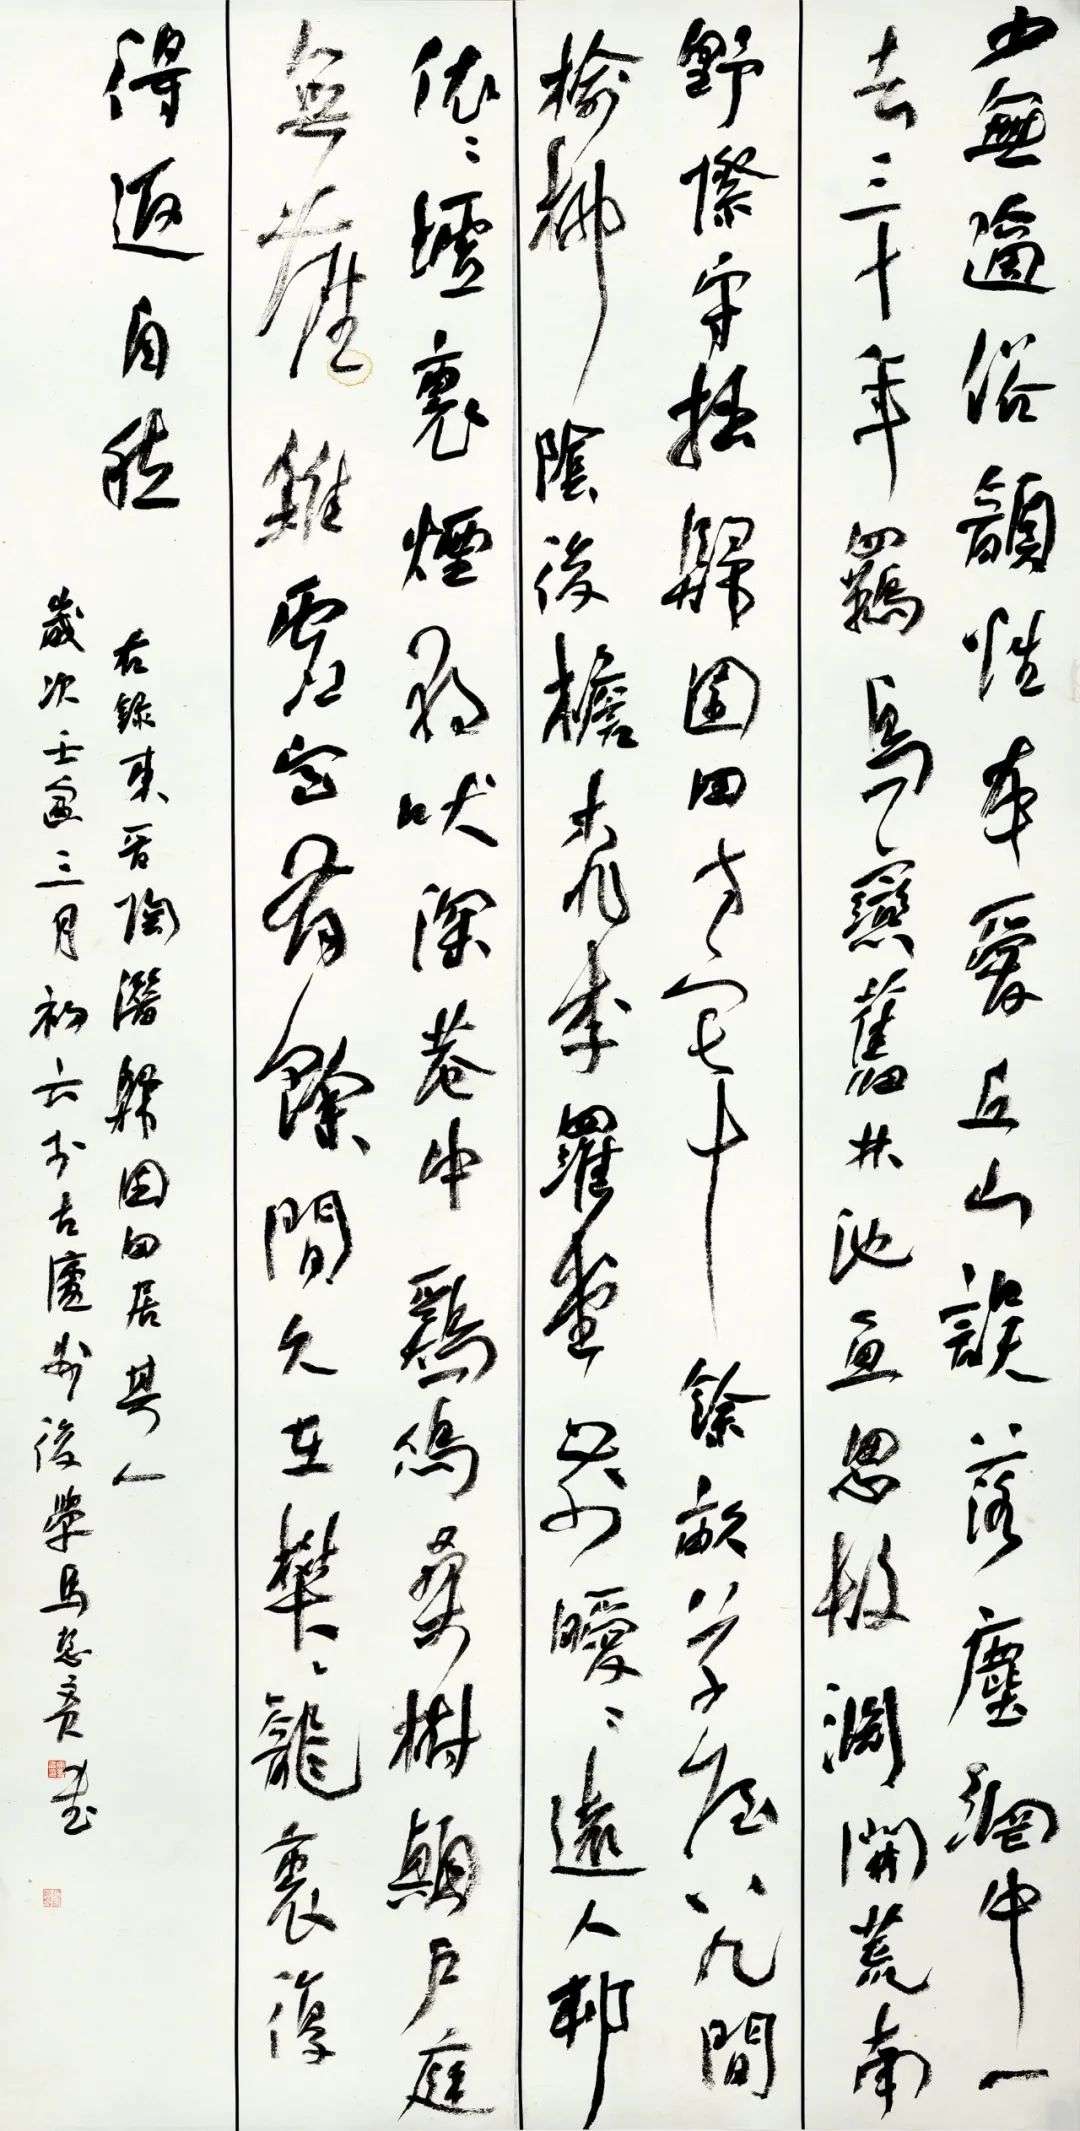 少無適俗韻性本愛丘山誤落塵網中一
去三十年羈鳥戀舊林池魚思故淵開荒南
野際守拙歸園田方宅十餘畝草屋八九間
榆柳陰後檐桃李羅堂前曖〻遠人邨
依〻墟裏煙狗吠深巷中鷄鳴桑樹顛户庭
無塵雜虛室有餘間久在樊籠裏復
得返自然
右録東晉陶潛歸園田居其一
歲次壬寅三月初六於古廬州後學馬書